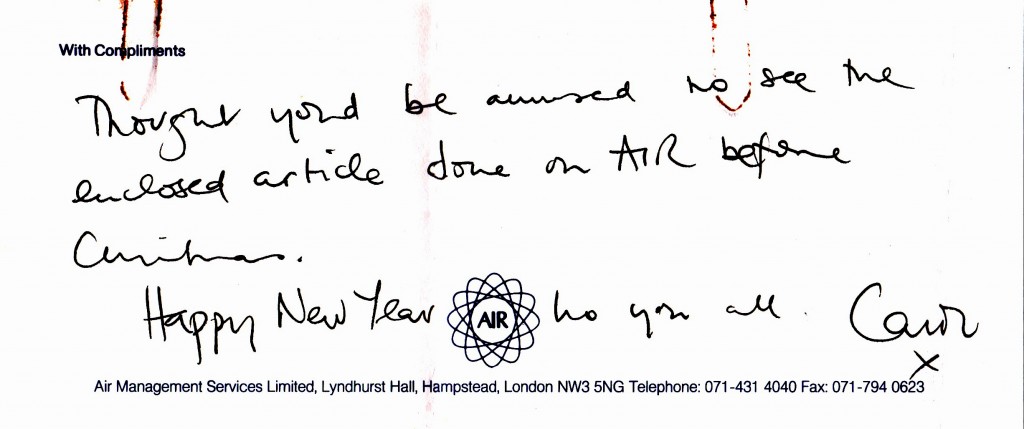 With Compliments
Thought you'd be amused to see the
enclosed article done on AIR before
Christmas.
Happy New Year AIR to you all. Carol
x
Air Management Services Limited, Lyndhurst Hall, Hampstead, London NW3 5NG Telephone: 071-431 4040 Fax: 071-794 0623